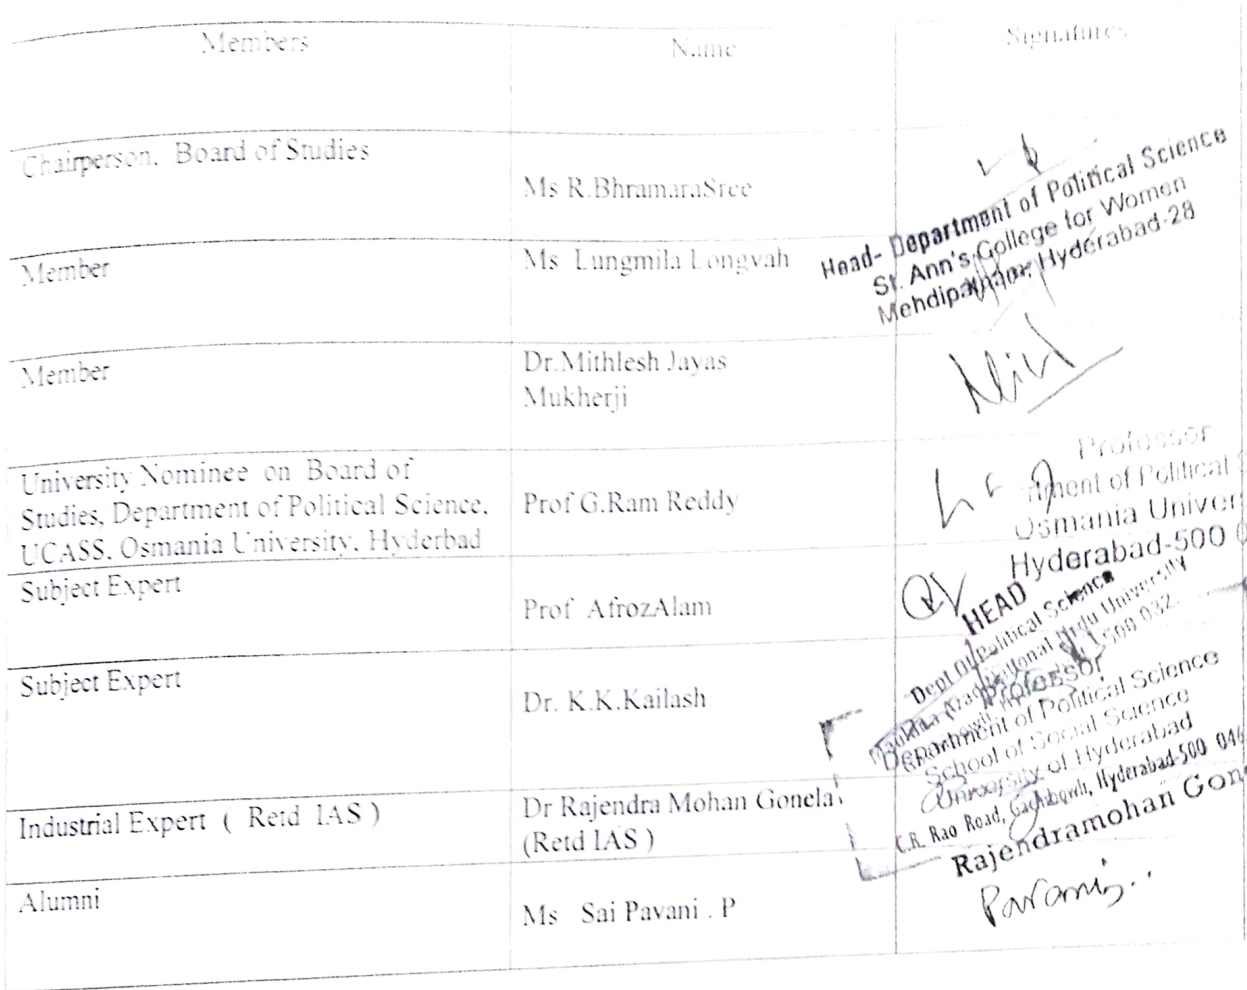 Members Name Signatures
Chairperson, Board of Studies
Ms R.BhramaraSree
Head- Department of Political Science
St. Ann's College for Women
Mehdipatnam, Hyderabad-28
Member
Ms Lungmila Longvah
Member
Dr.Mithlesh Jayas
Mukherji
University Nominee on Board of
Studies, Department of Political Science,
UCASS, Osmania University, Hyderbad
Prof G.Ram Reddy
Professor
rtment of Political S
Osmania Univer
Hyderabad-500 0
Subject Expert
Prof AfrozAlam
HEAD
Dept.Of Political Science
Urdu University
500 032.
Subject Expert
Dr. K.K.Kailash
Professor
Department of Political Science
School of Social Science
University of Hyderabad
C.R. Rao Road, Gachibowli, Hyderabad-500 046
Industrial Expert ( Retd IAS )
Dr Rajendra Mohan Gonela
(Retd IAS )
Rajendramohan Gon
Alumni
Ms Sai Pavani . P
Pavani